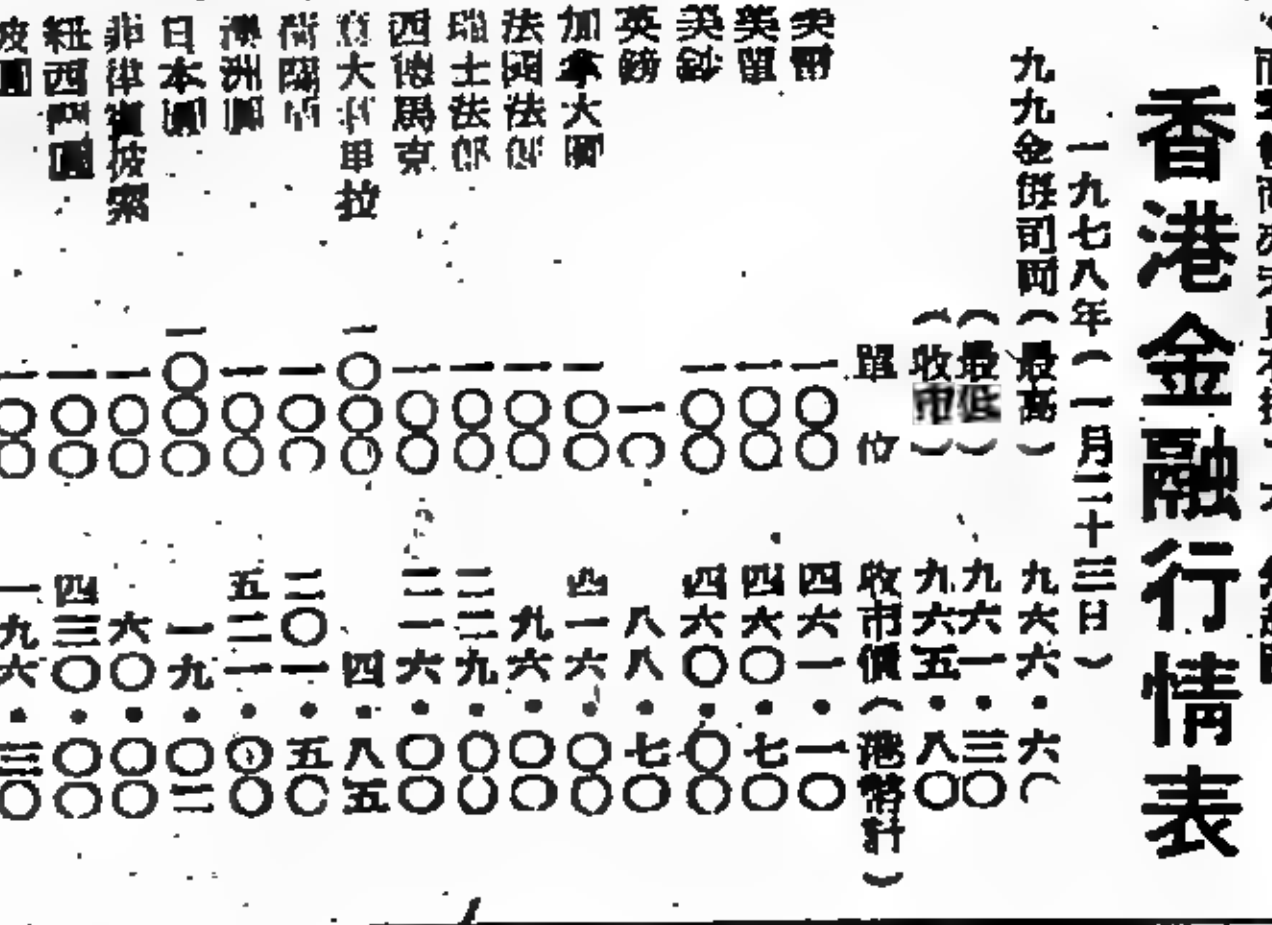 香港金融行情表
一九七八年(一月二十三日)
九九金每司両(最高) 九六六·六〇
(最低) 九六一·三〇
(收市) 九六五·八〇
單位 收市價(港幣計)
美電 一〇〇 四六一·一〇
美單 一〇〇 四六〇·七〇
美鈔 一〇〇 四六〇·〇〇
英鎊 一〇 八八·七〇
加拿大圓 一〇〇 四一六·〇〇
法國法郎 一〇〇 九六·〇〇
瑞士法郎 一〇〇 二三九·〇〇
西德馬克 一〇〇 二一六·〇〇
意大利里拉 一〇〇〇 四·八五
荷蘭盾 一〇〇 二〇一·五〇
澳洲圓 一〇〇 五二一·〇〇
日本圓 一〇〇〇 一九·〇二
菲律賓披索 一〇〇 六〇·〇〇
紐西蘭圓 一〇〇 四三〇·〇〇
一〇〇 一九六·三〇